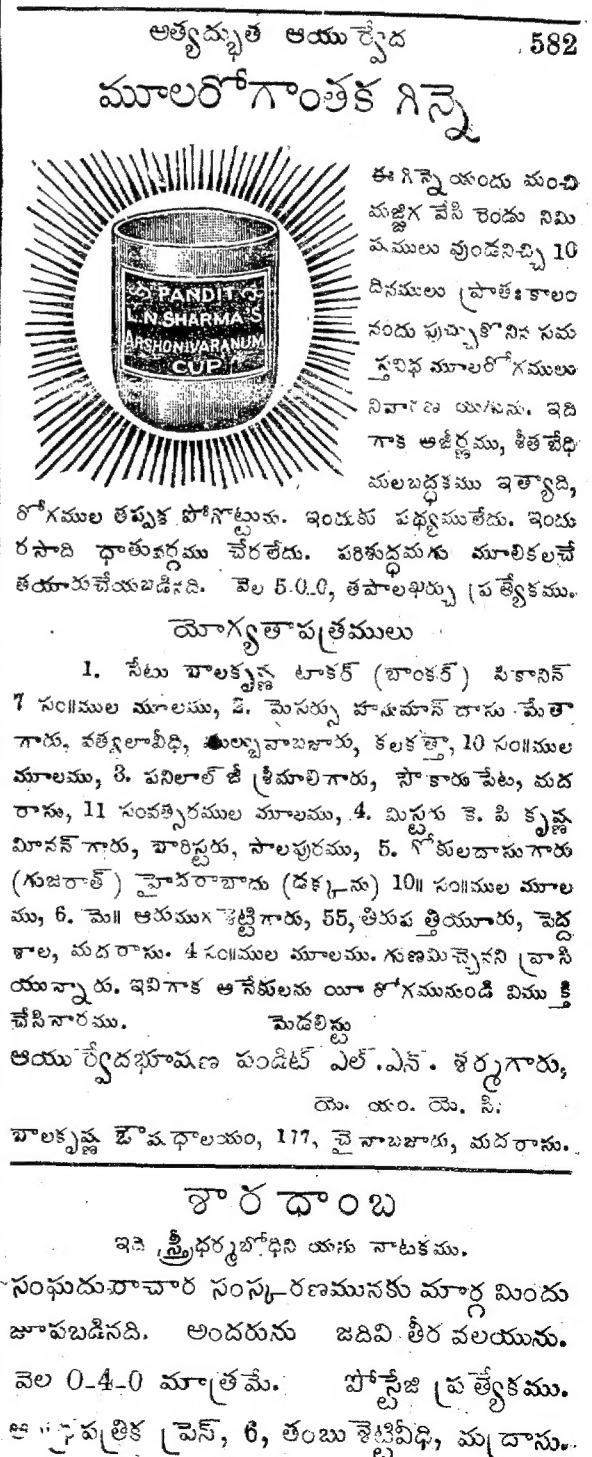 అత్యద్భుత ఆయుర్వేద 582
మూలరోగాంతక గిన్నె
PANDIT
L.N. SHARMA'S
ARSHONIVARANUM
CUP
ఈ గిన్నె యందు మంచి
మజ్జిగ వేసి రెండు నిమి
షములు వుండనిచ్చి 10
దినములు ప్రాతఃకాలం
నందు పుచ్చుకొనిన సమ
స్తవిధ మూలరోగములు
నివారణ యగును. ఇది
గాక ఆజీర్ణము, శీతబేధి
మలబద్ధకము ఇత్యాది,
రోగముల తప్పక పోగొట్టును. ఇందుకు పథ్యములేదు. ఇందు
రసాది ధాతువర్గము చేరలేదు. పరిశుద్ధమగు మూలికలచే
తయారుచేయబడినది. వెల 5-0-0, తపాలఖర్చు ప్రత్యేకము.
యోగ్యతాపత్రములు
1. సేటు బాలకృష్ణ టాకర్ (బాంకర్) పికానిన్
7 సం॥ముల మూలము, 2. మెసర్సు హనుమాన్ దాసు మేతా
గారు, వత్యలావీధి, కలకత్తా, 10 సం॥ముల
మూలము, 3. పనిలాల్ జీ శ్రీమాలిగారు, సౌకారుపేట, మద
రాసు, 11 సంవత్సరముల మూలము, 4. మిస్టరు కె. పి కృష్ణ
మీనన్ గారు, బారిస్టరు, సాలపురము, 5. గోకులదాసుగారు
(గుజరాత్) హైదరాబాదు (డక్కను) 10॥ సం॥ముల మూల
ము, 6. మె॥ ఆరుముగశెట్టిగారు, 55, తిరుపత్తియూరు, పెద్ద
శాల, మదరాసు. 4 సం॥ముల మూలము. గుణమిచ్చెనని వ్రాసి
యున్నారు. ఇవిగాక ఆనేకులను యీ రోగమునుండి విముక్తి
చేసినారము. మెడలిస్టు
ఆయుర్వేదభూషణ పండిట్ ఎల్.ఎన్. శర్మగారు,
యె. యం. యె. సి.
బాలకృష్ణ ఔషధాలయం, 177, చైనాబజారు, మదరాసు.
శారదాంబ
ఇది స్త్రీధర్మబోధిని యను నాటకము.
సంఘదురాచార సంస్కరణమునకు మార్గ మిందు
జూపబడినది. అందరును జదివి తీర వలయును.
వెల 0-4-0 మాత్రమే. పోస్టేజి ప్రత్యేకము.
ఆంధ్రపత్రిక ప్రెస్, 6, తంబుశెట్టివీధి, మద్రాసు.